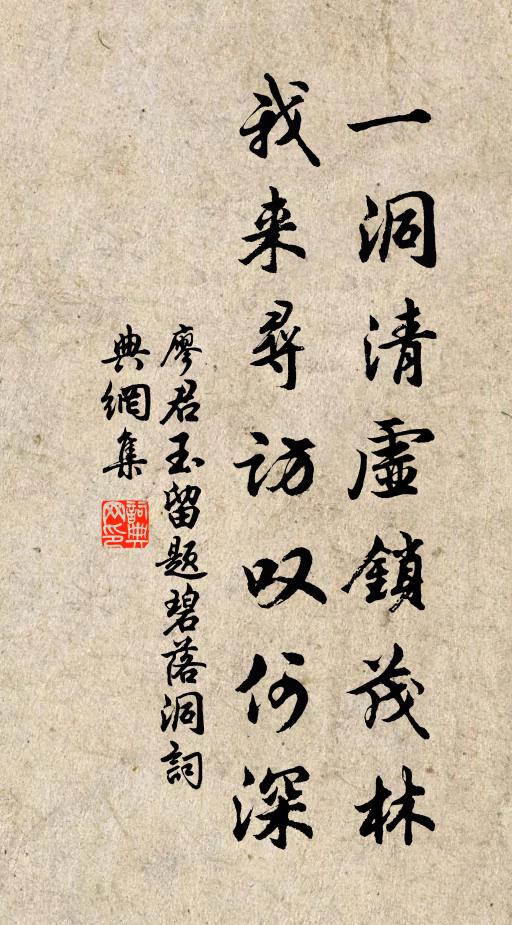 一洞清虛鎖茂林
我来尋訪叹何深
廖君玉留题碧落洞詞
典網集
詞典网印